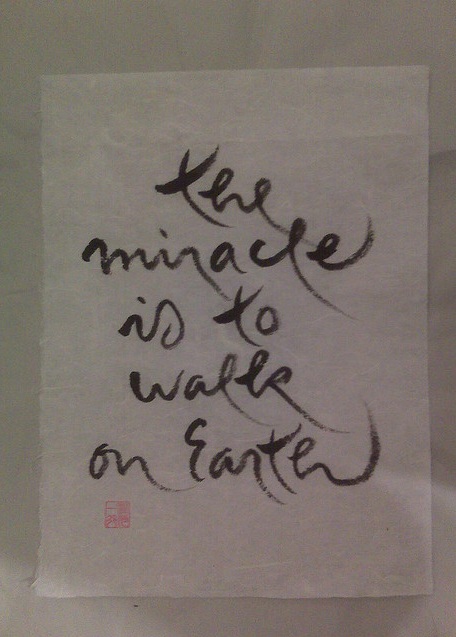 the
miracle
is to
walk
on Earth